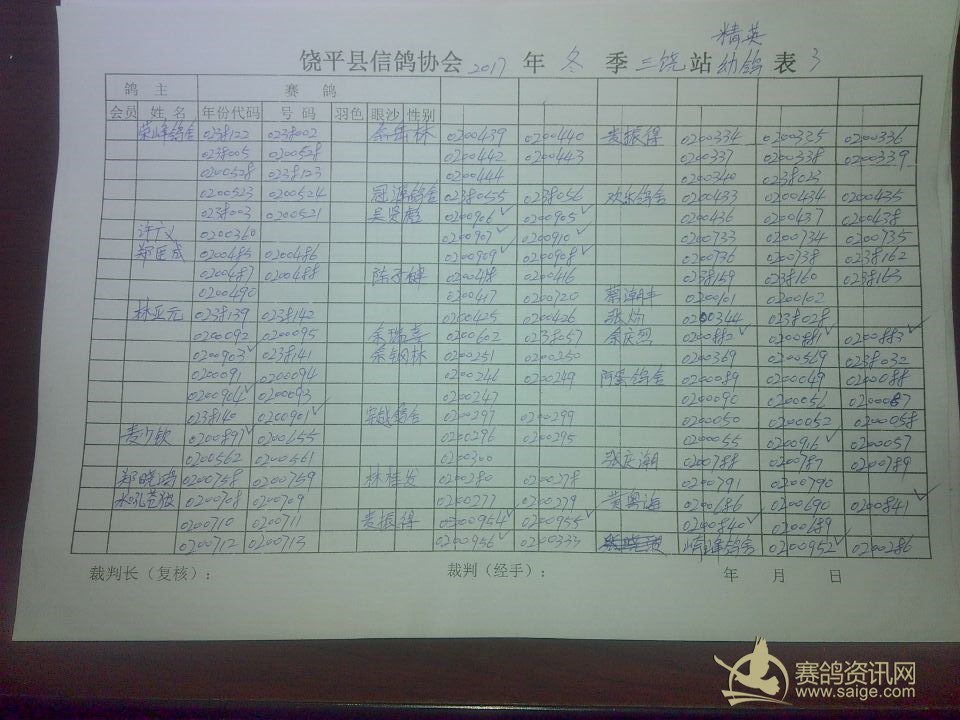 精英
饶平县信鸽协会 2017 年 冬 季 三饶 站 幼鸽 表 3
鸽 主 赛 鸽
会员 姓 名 年份代码 号 码 羽色 眼沙 性别
荣峰鸽舍 0238122 0238002 0200439 0200440 麦振得 0200334 0200335 0200336
0238005 0200528 0200442 0200443 0200337 0200338 0200339
0200528 0238123 0200444 0200340 0238023
0200523 0200524 冠源鸽舍 0238055 0238056 欢乐鸽舍 0200433 0200434 0200435
0238003 0200521 吴贤彪 0200906✓ 0200905✓ 0200436 0200437 0200438
许广义 0200360 0200907✓ 0200910✓ 0200733 0200734 0200735
0200485 0200486 0200909✓ 0200908✓ 0200736 0200738 0238162
0200487 0200488 0200418 0200416 0238159 0238160 0238163
0200490 0200417 0200720 0200101 0200102
林亚元 0238139 0238142 0200425 0200426 0200344 0238028
0200092 0200095 余瑞喜 0200602 0238057 余庆烈 0200882✓ 0200881✓ 0200883✓
0200903✓ 0238141 余钢林 0200251 0200250 0200369 0200569 0238032
0200091 0200094 0200246 0200249 阿蛋鸽舍 0200089 0200049 0200088
0200904✓ 0200093 0200247 0200090 0200051 0200087
0238140 0200901✓ 0200297 0200299 0200050 0200052 0200058
麦少钦 0200897✓ 0200655 0200296 0200295 0200055 0200916✓ 0200057
0200562 0200461 0200300 张庆潮 0200788 0200787 0200789
郑晓鸿 0200758 0200759 林桂发 0200280 0200278 0200791 0200790
水吼苍狼 0200708 0200709 0200277 0200279 黄粤海 0200686 0200690 0200841✓
0200710 0200711 麦振得 0200954✓ 0200955✓ 0200840✓ 0200689
0200712 0200713 0200956✓ 0200333 峰鸽舍 0200952✓ 0200286
裁判长（复核）： 裁判（经手）： 年 月 日
赛鸽资讯网
www.saige.com